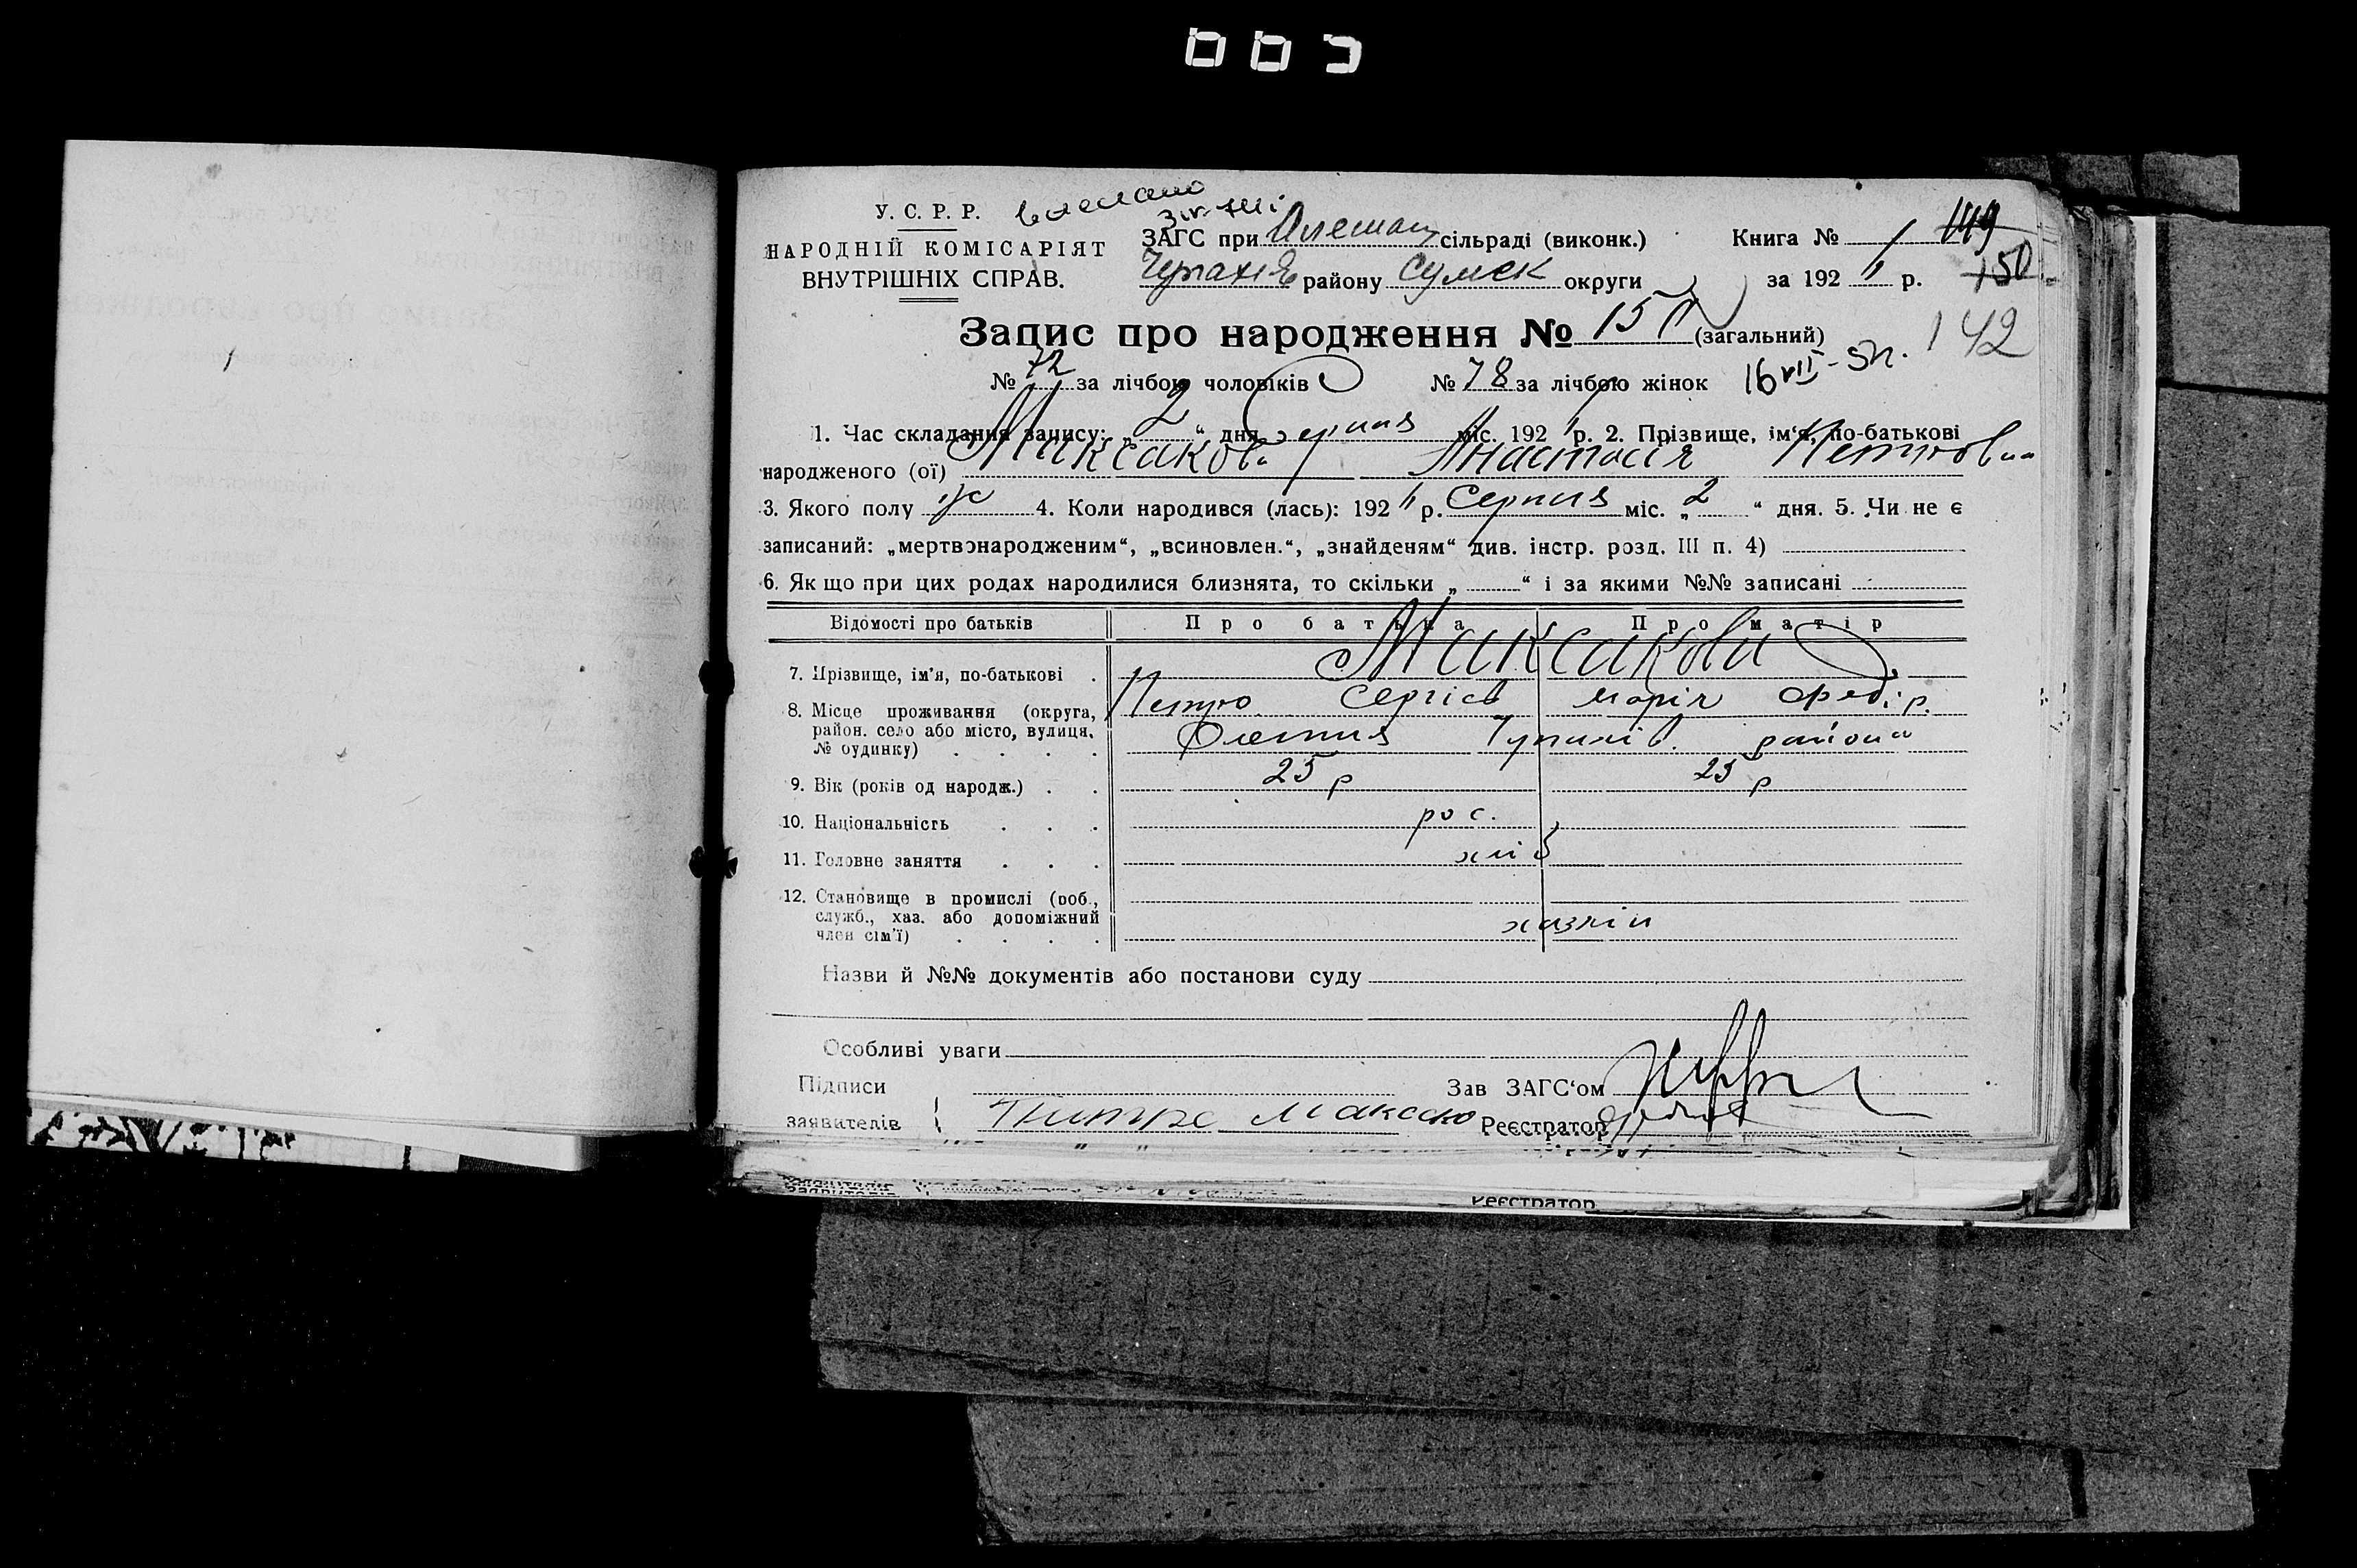 У. С. Р. Р.
НАРОДНІЙ КОМІСАРІЯТ
ВНУТРІШНІХ СПРАВ.
ЗАГС при Олешан сільраді (виконк.)
Книга № 1 149
районУ Сумск округи
за 192 р. 150
Запис про народження № 150 (загальний) 142
№ 72 за лічбою чоловіків № 78 за лічбою жінок 16 VII - 52.
1. Час складання запису: „ 2 “ дня Серпня міс. 192 р. 2. Прізвище, ім‘я, по-батькові
народженого (ої) Максакова Анастасія Петровна
3. Якого полу ж 4. Коли народився (лась): 192 р. Серпня міс. „ 2 “ дня. 5. Чи не є
записаний: „мертвонародженим“, „всиновлен.“, „знайденям“ див. інстр. розд. III п. 4)
6. Як що при цих родах народилися близнята, то скільки „ “ і за якими №№ записані
Відомості про батьків Про батька Про матір
7. Прізвище, ім’я, по-батькові . Максакови
Петро Сергієв Марія Федір.
8. Місце проживання (округа,
район. село або місто, вулиця,
№ будинку) . . . . Олешня Чупахів. района
9. Вік (років од народж.) . . 25 р 25 р
10. Національність . . . рос.
11. Головне заняття . . . хліб
12. Становище в промислі (роб.,
служб., хаз. або допоміжний
член сім’ї) . . . . хазяїн
Назви й №№ документів або постанови суду
Особливі уваги
Підписи Зав ЗАГС‘ом
заявителів Реєстратор
Реєстратор